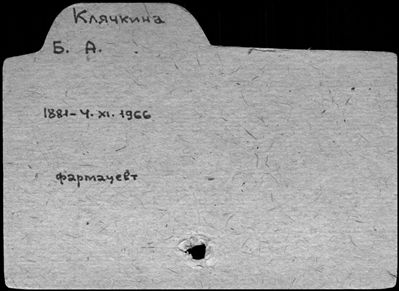 Клячкина
Б. А.
1881-4.XI.1966
фармацевт